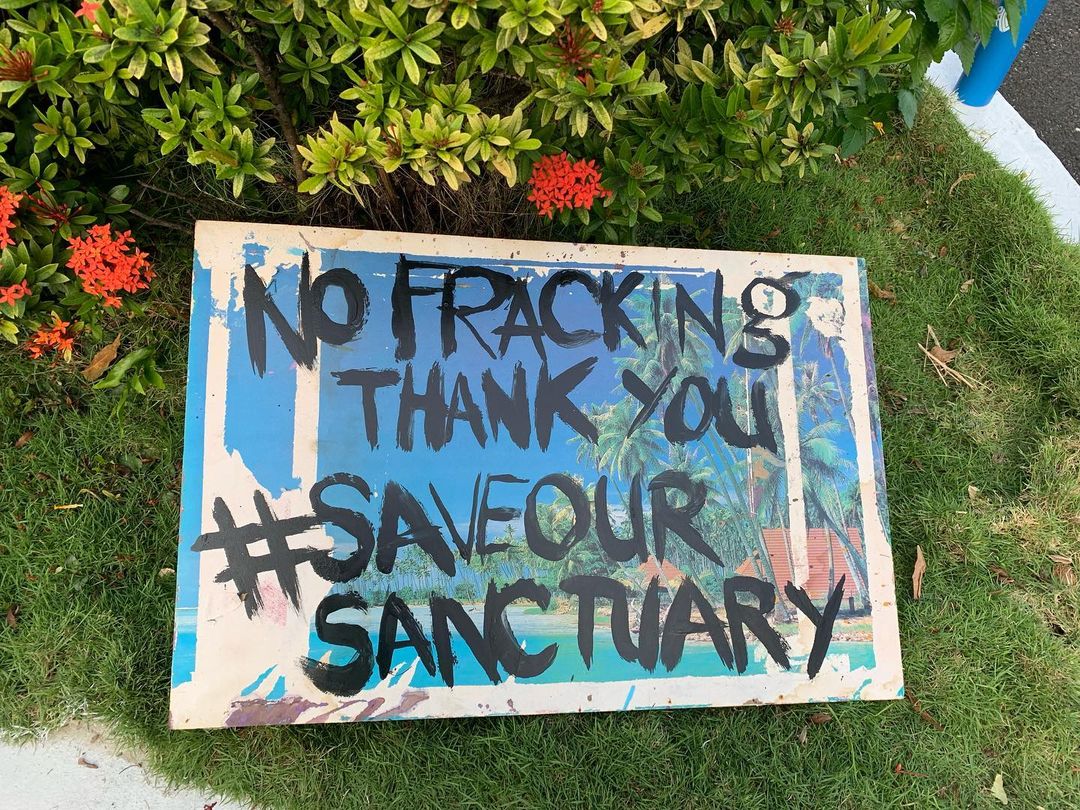 NO FRACKINg
THANK YOU
#SAVEOUR
SANCTUARY